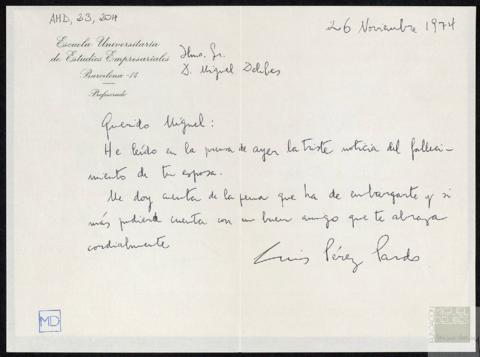 AMD, 23, 204
26 Noviembre 1974
Escuela Universitaria
de Estudios Empresariales
Barcelona - 14
Profesorado
Ilmo. Sr.
D. Miguel Delibes
Querido Miguel:
He leído en la prensa de ayer la triste noticia del falleci-
miento de tu esposa.
Me doy cuenta de la pena que ha de embargarte y si
más pudiera cuenta con un buen amigo que te abraza
cordialmente
Luis Pérez Pardo
MD